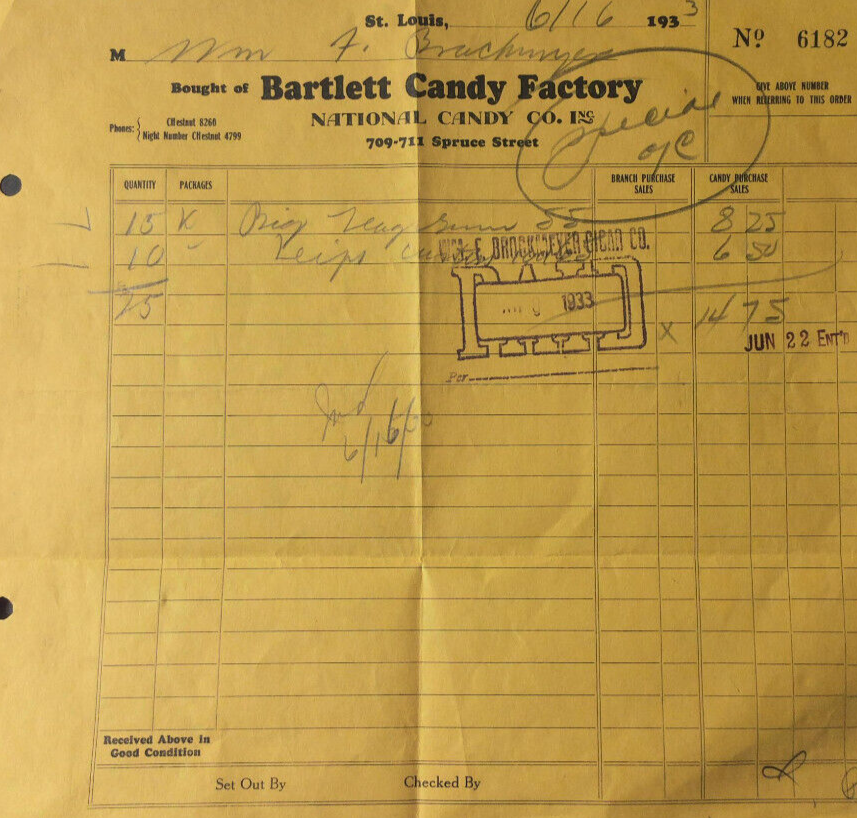 St. Louis, 6/16 1933
Nº 6182
M Wm F.
GIVE ABOVE NUMBER
WHEN REFERRING TO THIS ORDER
Bought of Bartlett Candy Factory
NATIONAL CANDY CO. INC
Phones: CHestnut 8260
Night Number CHestnut 4799
709-711 Spruce Street
Special
O/C
QUANTITY PACKAGES BRANCH PURCHASE SALES CANDY PURCHASE SALES
15 K Big 55 8 25
10 " 6 50
25 14 75
BROCKMEYER CIGAR CO.
1933
X
JUN 22 ENT'D
Per
6/16/33
Received Above in
Good Condition
Set Out By Checked By